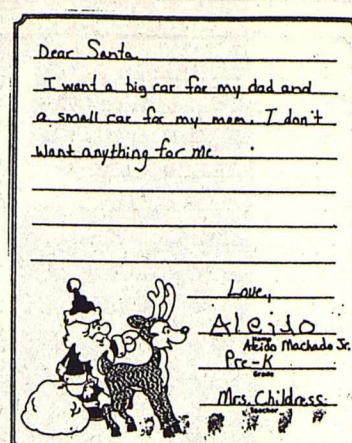 Dear Santa
I want a big car for my dad and
a small car for my mom. I don't
want anything for me.
Love,
Aleido
Name
Aleido Machado Jr.
Pre-K
Grade
Mrs. Childress
Teacher